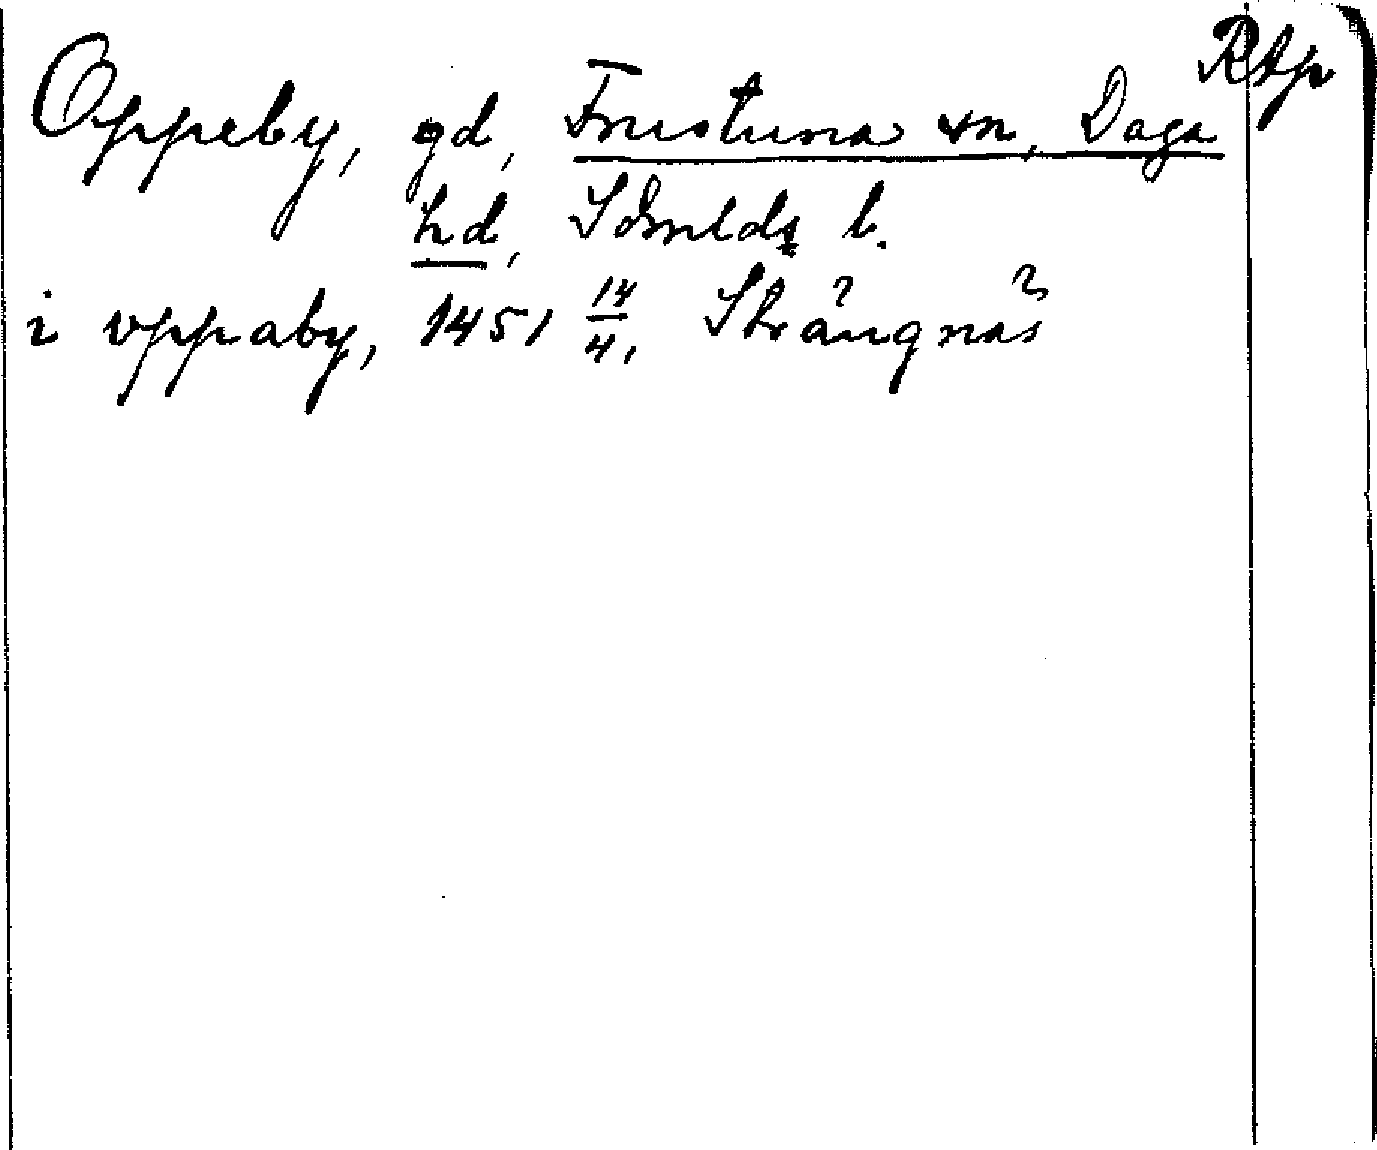 Rtp
Oppeby, gd, Frustuna sn, Daga
hd, Södmlds l.
i vppaby, 1451 14/4, Strängnäs